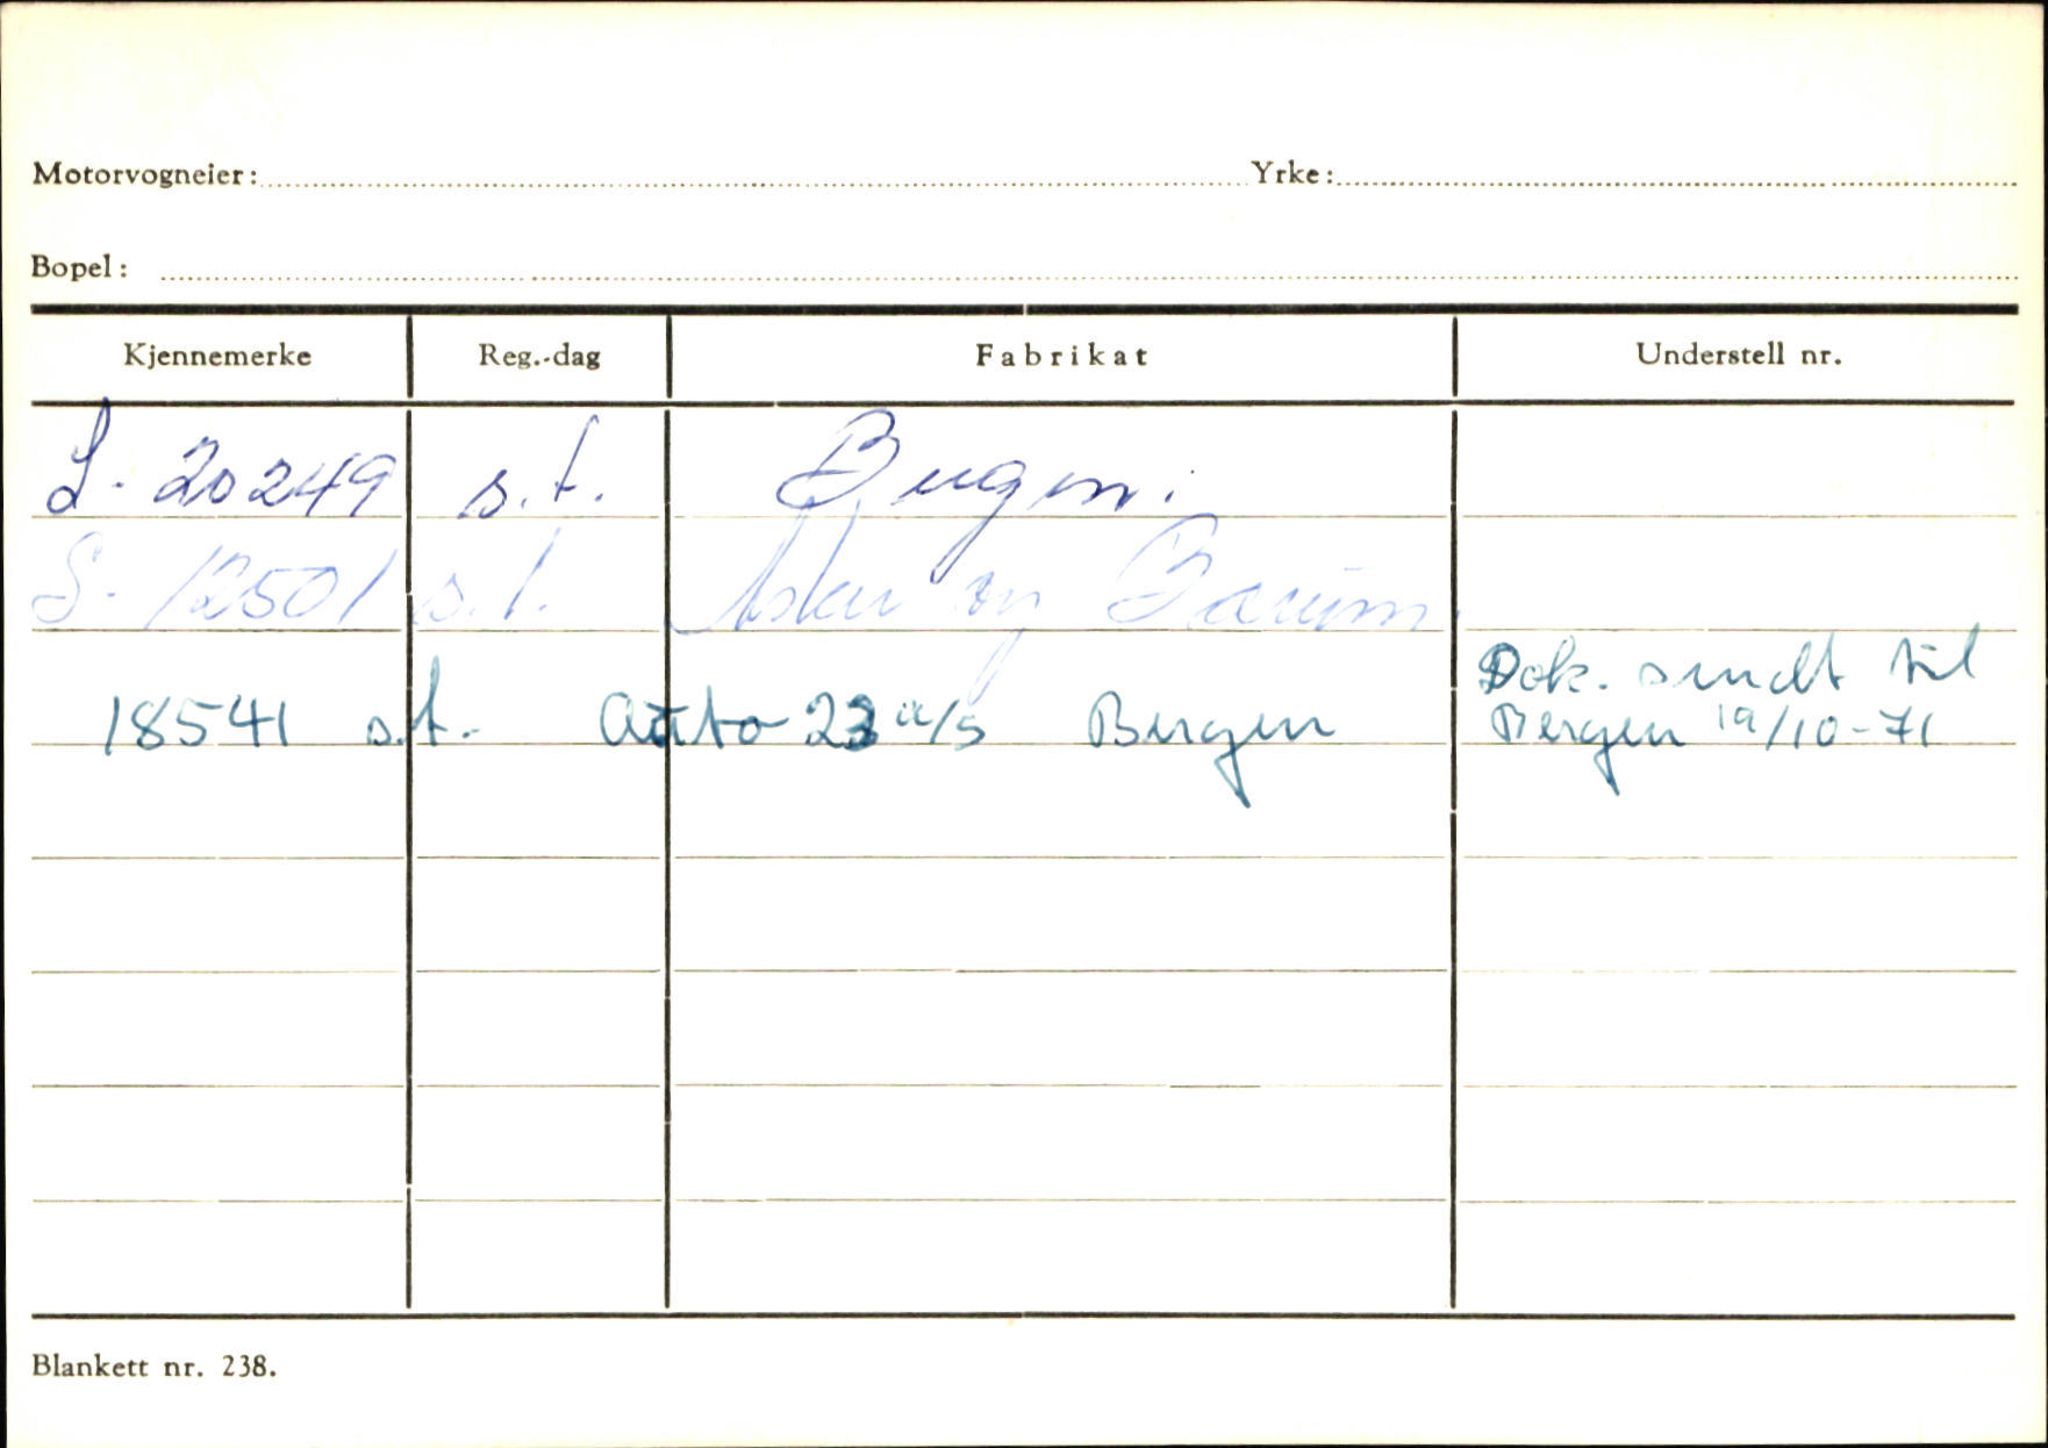 Motorvogneier: Yrke:
Bopel:
Kjennemerke Reg.-dag Fabrikat Understell nr.
S- 20249 s.t. Bergen.
S- 12501 s.t. Asker og Bærum.
Dok. sendt til
18541 s.t. Auto 23 a/s Bergen Bergen 19/10-71
Blankett nr. 238.